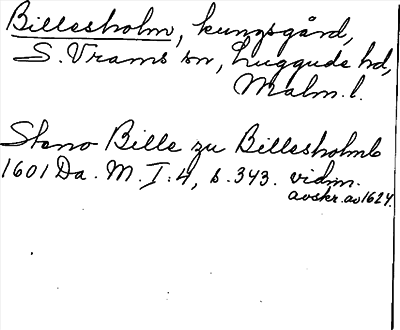 Billesholm, kungsgård,
S. Vrams sn, Luggude hd,
Malm. l.
Steno Bille zu Billesholmb
1601 Da. M. I:4, s. 343. vidim.
avskr. av 1624.